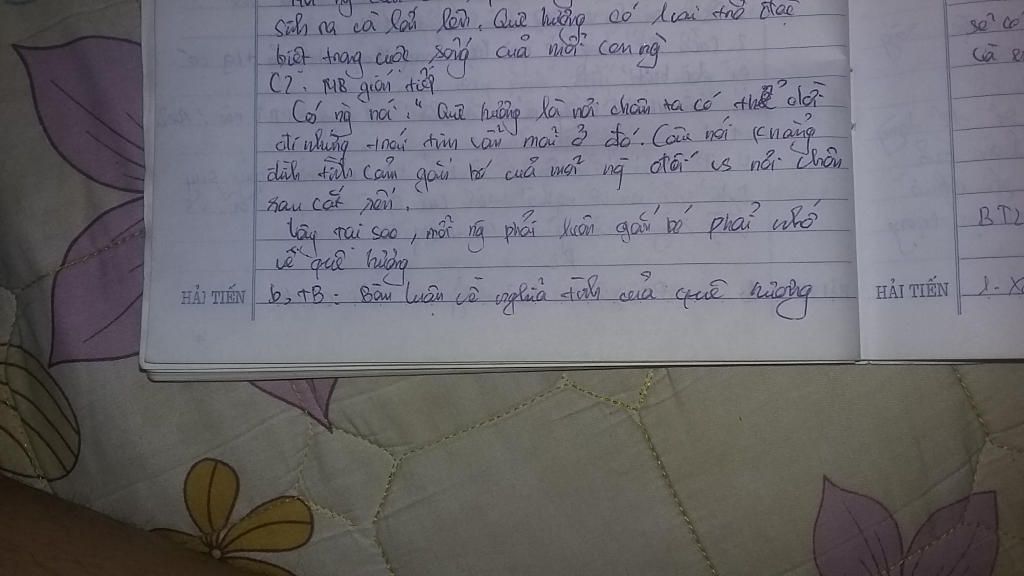 sinh ra và lớn lên. Quê hương có vai trò đặc
biệt trong cuộc sống của mỗi con ng
C2: MB gián tiếp
Có ng nói: "Quê hương là nơi chân ta có thể dời
đi nhưng trái tim vẫn mãi ở đó. Câu nói khẳng
định tình cảm gắn bó của mỗi ng đối vs nơi chôn
rau cắt rốn.
Vậy tại sao, mỗi ng phải luôn gắn bó phải nhớ
về quê hương
b, TB: Bàn luận về nghĩa tình của quê hương
HẢI TIẾN
HẢI TIẾN
số có
BT2
1.